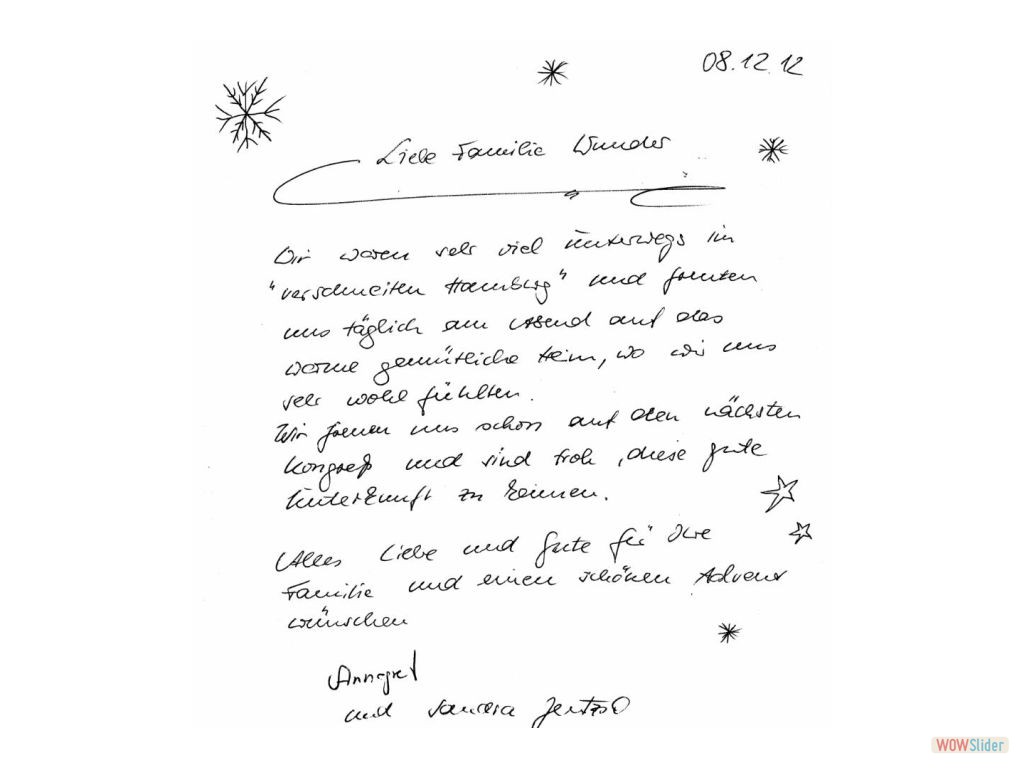 08.12.12
Liebe Familie Wunder
Wir waren sehr viel unterwegs im
"verschneiten Hamburg" und freuten
uns täglich am Abend auf das
warme gemütliche Heim, wo wir uns
sehr wohl fühlten.
Wir freuen uns schon auf den nächsten
Kongreß und sind froh, diese gute
Unterkunft zu kennen.
Alles Liebe und Gute für Ihre
Familie und einen schönen Advent
wünschen
Annegret
und Sandra
WOWSlider